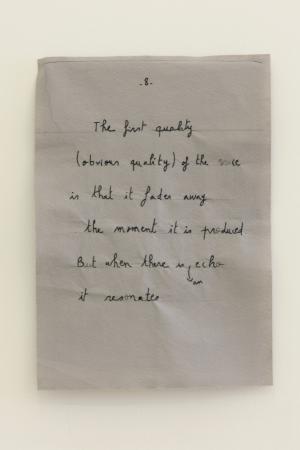 -8-
The first quality
(obvious quality) of the voice
is that it fades away
the moment it is produced
But when there is an echo
it resonates